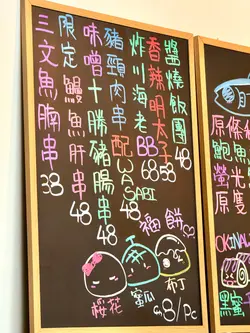 醬燒飯團 48
香辣明太子 58
炸川海老BB 68
豬頸肉串配WASABI
味噌十勝豬腸串 48
限定鰻魚肝串 48
三文魚腩串 38
福餅
桜花
蜜瓜
布丁
8/Pc
原條
鮑魚
螢光
原隻
OKINA
黑蜜